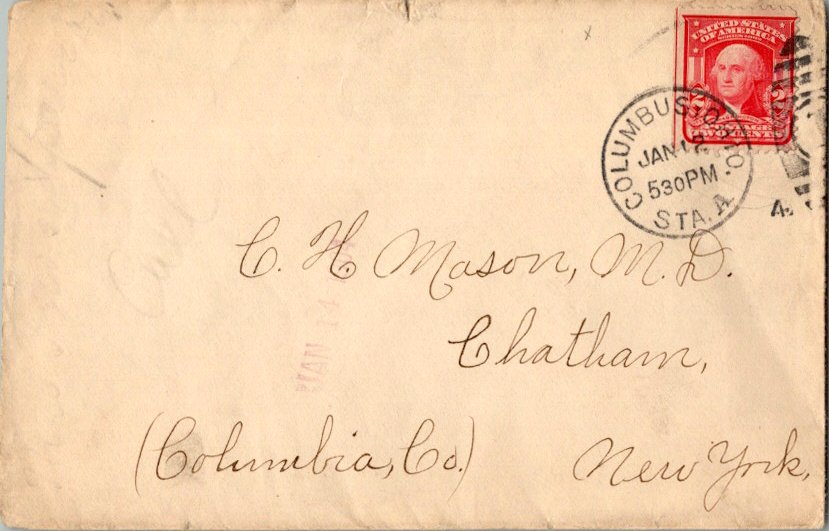 UNITED STATES
OF AMERICA
TWO CENTS
COLUMBUS, OHIO
JAN 12
530PM
STA. A.
4
C. H. Mason, M. D.
Chatham,
(Columbia, Co.) New York.
JAN 14